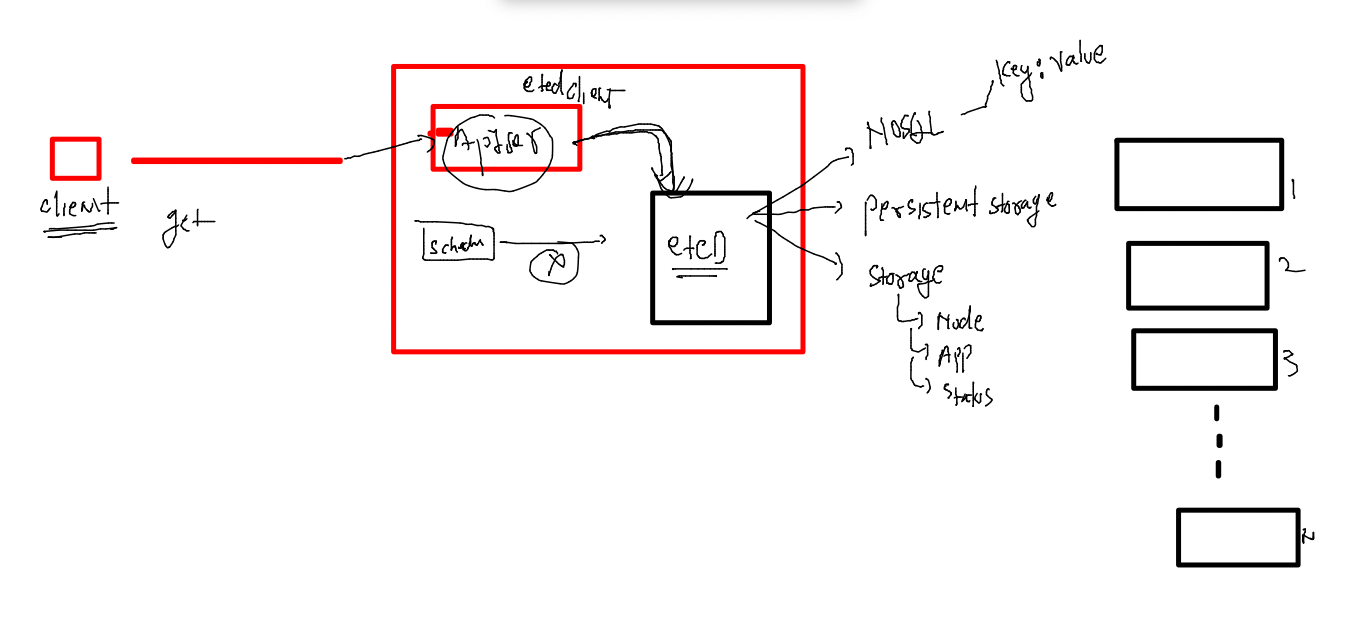 client
get
etcd client
Apiser
schedu
X
etcD
NOSQL
Key:value
persistent storage
storage
Node
App
Status
1
2
3
N